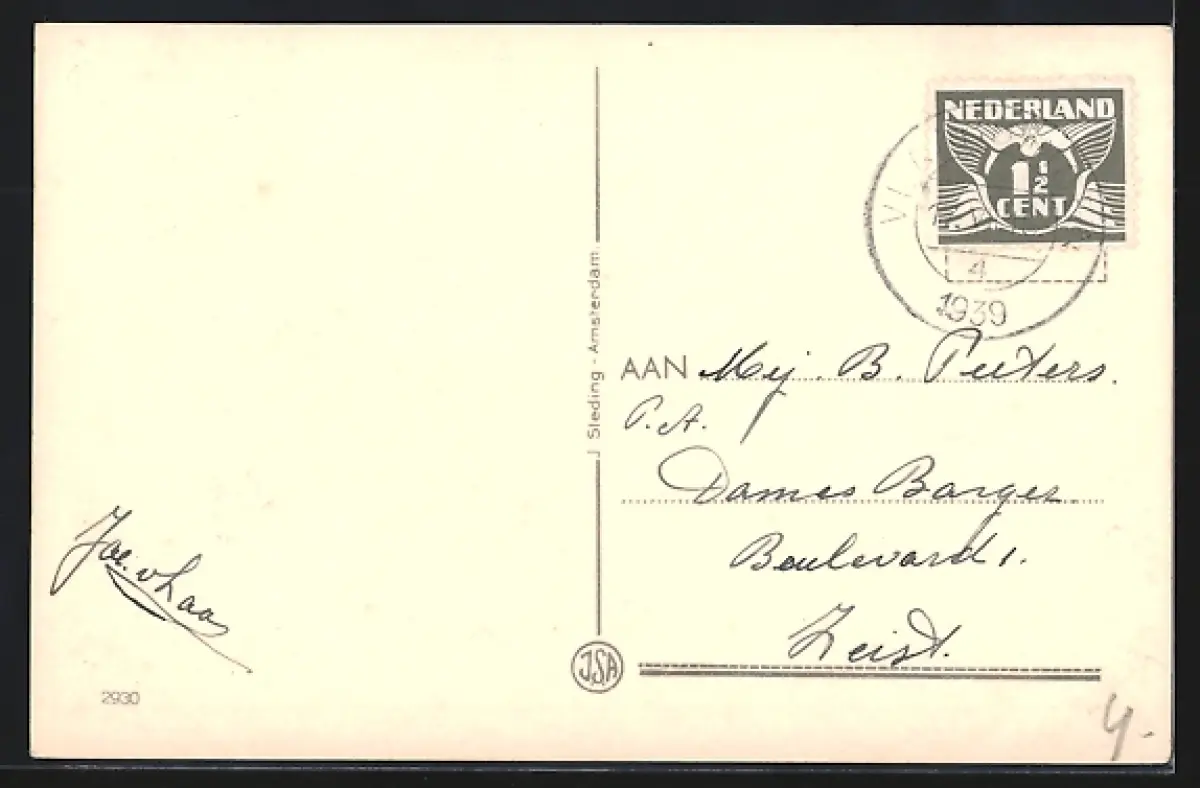 NEDERLAND
1 1/2
CENT
4
1939
J Sleding - Amsterdam
AAN Mej. B. Peeters.
P.A.
Dames Barger
Boulevard 1.
Zeist.
Joe. v Laa
JSA
2930
4.-